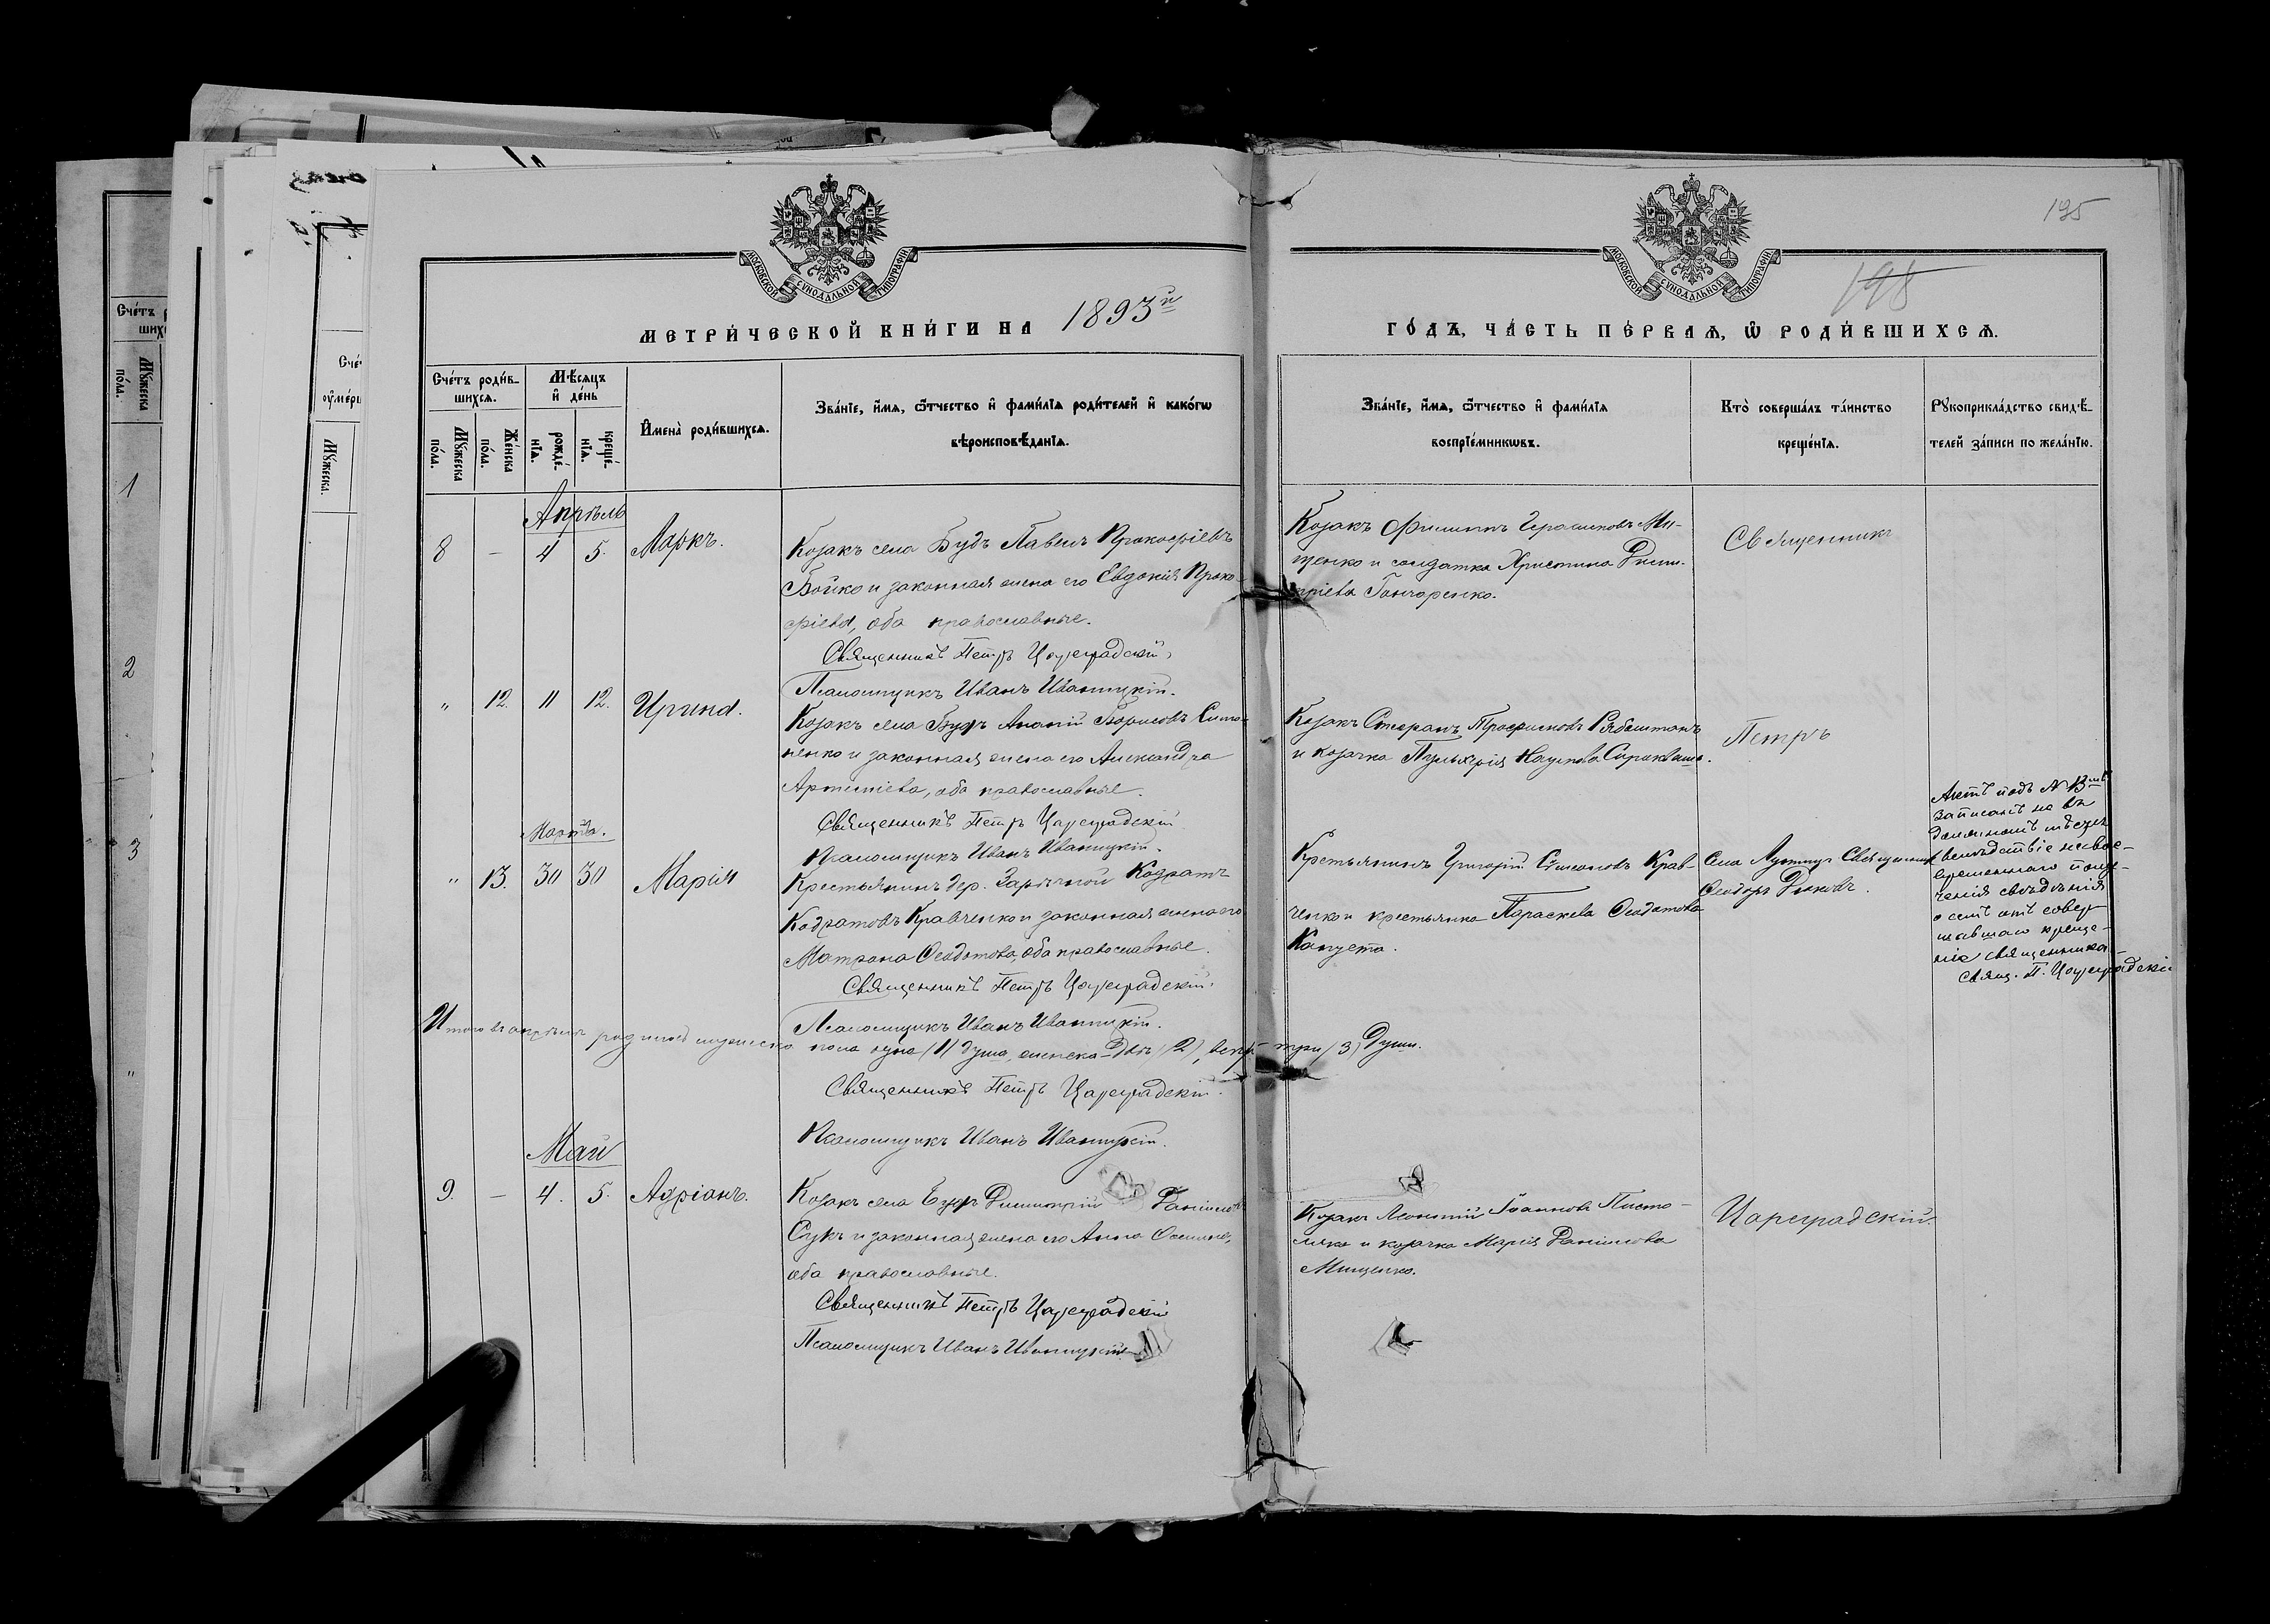 195
198
МОСКОВСКОЙ СУНОДАЛЬНОЙ ТИПОГРАФІИ
МОСКОВСКОЙ СУНОДАЛЬНОЙ ТИПОГРАФІИ
МЕТРИ́ЧЕСКОЙ КНИ́ГИ НА 1893й
ГО́ДЪ, ЧА́СТЬ ПЕ́РВАЯ, Ѡ РОДИ́ВШИХСЯ.
Сче́тъ роди́в-
шихся.
Мꙋжеска по́ла.
Же́нска по́ла.
Мѣ́сяцъ
и҆ де́нь
рожде́-
нїя.
креще́-
нїя.
И҆мена̀ роди́вшихся.
Зва́нїе, и҆́мя, ѻ҆́тчество и҆ фами́лїя роди́телей и҆ како́гѡ
вѣроисповѣ́данїя.
Зва́нїе, и҆́мя, ѻ҆́тчество и҆ фами́лїя
воспрїе́мникѡвъ.
Кто̀ соверша́лъ та́инство
креще́нїя.
Рꙋкоприкла́дство свидѣ́-
телей за́писи по жела́нїю.
Апрѣль
8 — 4 5. Маркъ.
Козакъ села Будъ Павелъ Прокофіевъ
Бойко и законная жена его Евдокія Проко-
фіева, оба православные.
Священникъ Петръ Цареградскій.
Псаломщикъ Иванъ Иваницкій.
Козакъ Филиппъ Герасимовъ Ми-
щенко и солдатка Христина Дими-
тріева Гончаренко.
Священникъ
" 12. 11 12. Ирина.
Козакъ села Будъ Ананій Борисовъ Симо-
ненко и законная жена его Александра
Артеміева, оба православные.
Священникъ Петръ Цареградскій
Псаломщикъ Иванъ Иваницкій.
Козакъ Стефанъ Трофимовъ
и козачка Пульхерія Наумова
Петръ
Марта.
" 13. 30 30 Марія
Крестьянинъ дер. Заричной Кодратъ
Кодратовъ Кравченко и законная жена его
Матрона Ѳеодотова, оба православные.
Священникъ Петръ Цареградскій.
Псаломщикъ Иванъ Иваницкій.
Крестьянинъ Григорій Симоновъ Крав-
ченко и крестьянка Параскева Ѳеодотова
Капуста.
Села Священникъ
Ѳеодоръ
Актъ подъ № 13мъ
записанъ не въ
должномъ мѣсяцѣ
вслѣдствіе несвое-
временнаго полу-
ченія свѣдѣнія
о семъ отъ совер-
шавшаго креще-
ніе священника.
Свящ. П. Цареградскій
Итого въ апрѣлѣ родилось мужеска пола одна (1) душа, женска – двѣ (2), всѣхъ три (3) души.
Священникъ Петръ Цареградскій.
Псаломщикъ Иванъ Иваницкій.
Май
9. — 4. 5. Адріанъ.
Козакъ села Будъ Димитрій Даніиловъ
Сукъ и законная жена его Анна
оба православные.
Священникъ Петръ Цареградскій
Псаломщикъ Иванъ Иваницкій
Козакъ Леонтій Іоанновъ Писто-
и козачка Марія Даніилова
Мищенко.
Цареградскій.
1
2
3
"